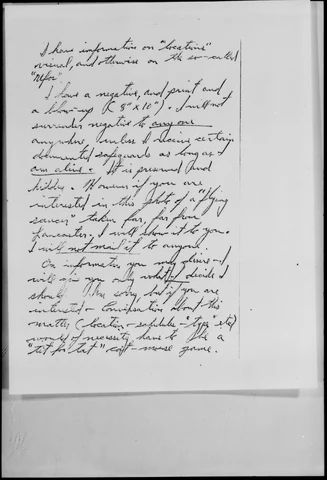 I have information on "locations"
visual, and otherwise on the so-called
"ufos".
I have a negative, and print and
a blow-up (8" x 10"). I will not
surrender negative to anyone
anywhere unless I receive certain
documented safeguards as long as I
am alive. It is preserved and
hidden. However if you are
interested in this photo of a "flying
saucer" taken far, far from
Lancaster, I will show it to you.
I will not mail it to anyone.
On information you may glean - I
will give you only what I decide I
should. Am sorry, but if you are
interested - conversation about this
matter (location - satellites - "types" etc)
would of necessity have to be a
"tit for tat" cat - mouse game.